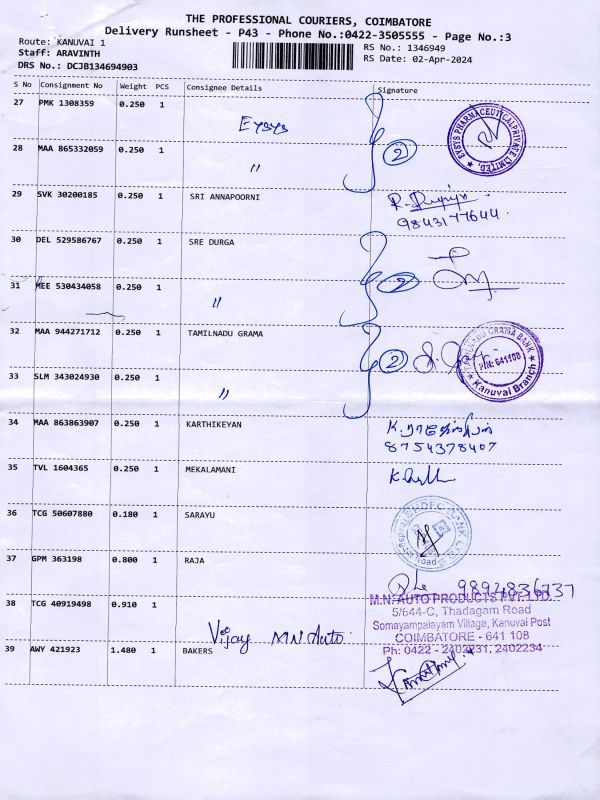 THE PROFESSIONAL COURIERS, COIMBATORE
Delivery Runsheet - P43 - Phone No.:0422-3505555 - Page No.:3
Route: KANUVAI 1
RS No.: 1346949
Staff: ARAVINTH
RS Date: 02-Apr-2024
DRS No.: DCJB134694903
S No Consignment No Weight PCS Consignee Details Signature
27 PMK 1308359 0.250 1 Eysys
EYSYS PHARMACEUTICAL PRIVATE LIMITED
28 MAA 865332059 0.250 1 " 2
29 SVK 30200185 0.250 1 SRI ANNAPOORNI
9843177644
30 DEL 529586767 0.250 1 SRE DURGA
31 MEE 530434058 0.250 1 " 2
32 MAA 944271712 0.250 1 TAMILNADU GRAMA 2
TAMILNADU GRAMA BANK
PIN: 641108
Kanuvai Branch
33 SLM 343024930 0.250 1 "
34 MAA 863863907 0.250 1 KARTHIKEYAN
8754378407
35 TVL 1604365 0.250 1 MEKALAMANI
36 TCG 50607880 0.180 1 SARAYU
HDFC BANK
37 GPM 363198 0.800 1 RAJA
9894836737
38 TCG 40919498 0.910 1 Vijay M.N Auto
M.N. AUTO PRODUCTS PVT. LTD
5/644-C, Thadagam Road
Somayampalayam Village, Kanuvai Post
COIMBATORE - 641 108
Ph: 0422 - 2402231, 2402234
39 AWY 421923 1.480 1 BAKERS